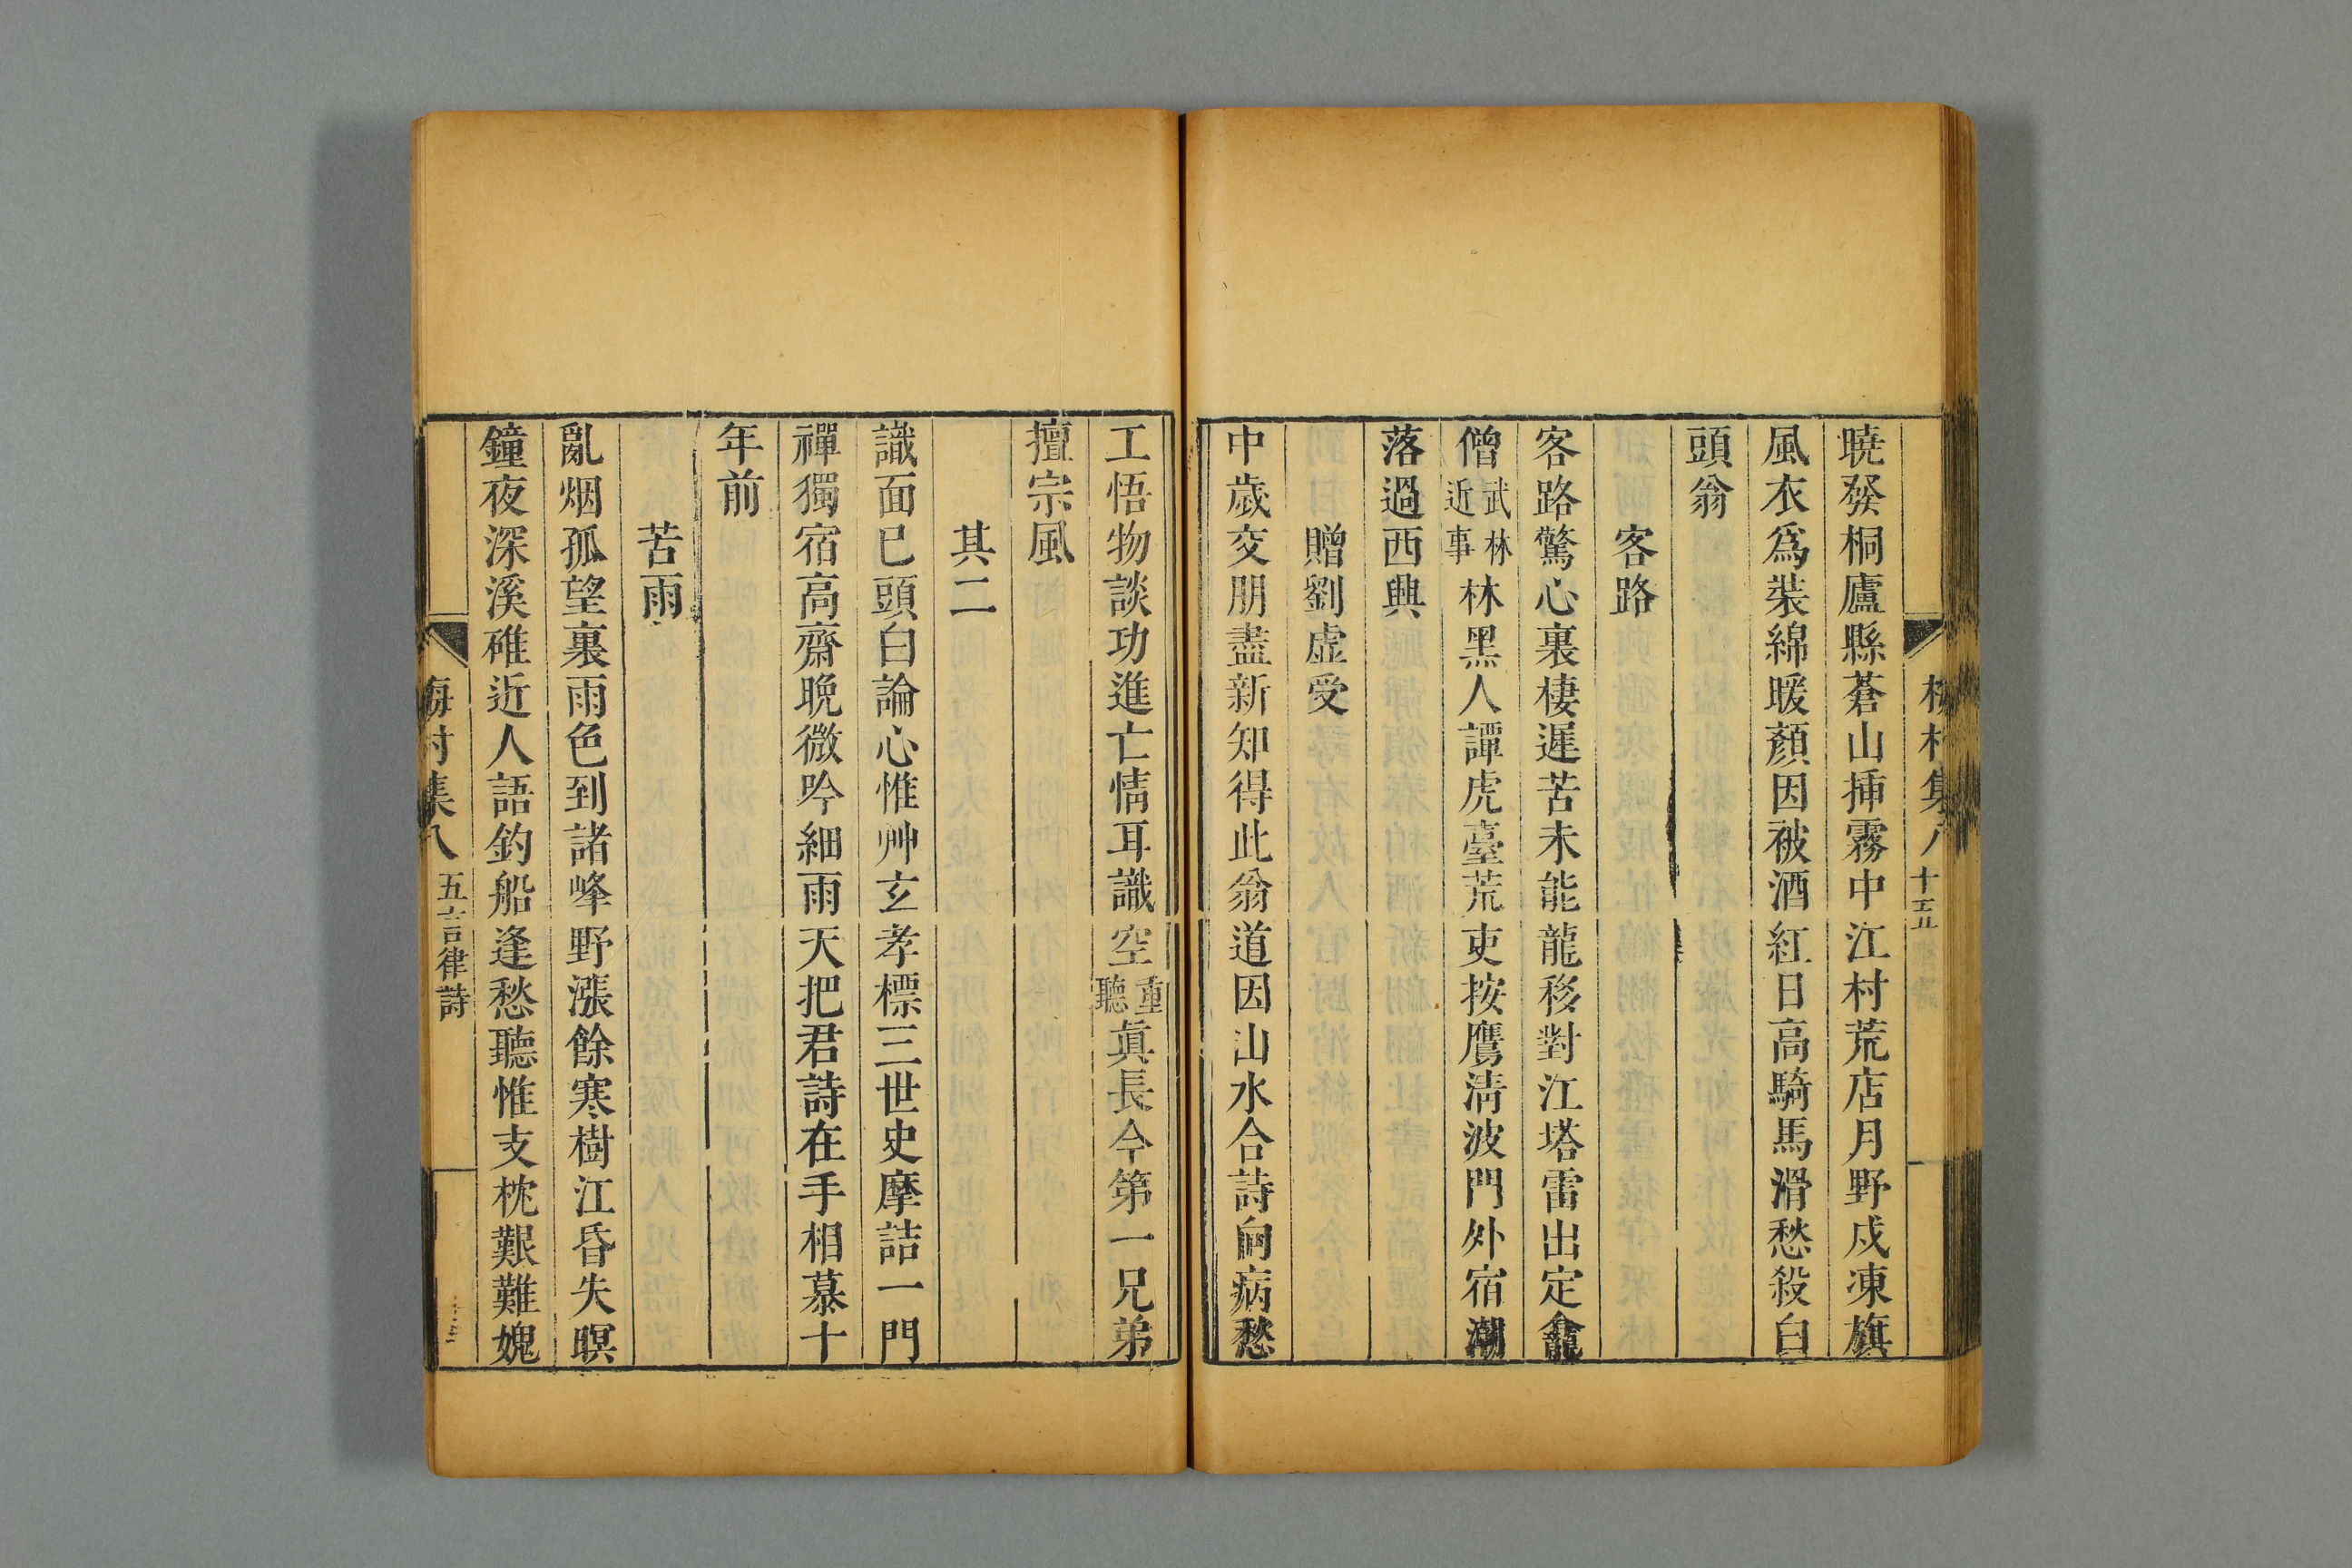 曉發桐廬縣蒼山揷霧中江村荒店月野戍凍旗
風衣爲裝綿暖顏因被酒紅日高騎馬滑愁殺白
頭翁
客路
客路驚心裏棲遲苦未能龍移對江塔雷出定龕
僧武林近事林黑人譚虎臺荒吏按鷹淸波門外宿潮
落過西興
贈劉虚受
中歲交朋盡新知得此翁道因山水合詩向病愁
工悟物談功進亡情耳識空重聽眞長今第一兄弟
擅宗風
其二
識面已頭白論心惟艸玄孝標三世史摩詰一門
禪獨宿高齋晚微吟細雨天把君詩在手相慕十
年前
苦雨
亂烟孤望裏雨色到諸峰野漲餘寒樹江昏失暝
鐘夜深溪碓近人語釣船逢愁聽惟支枕艱難媿
梅村集八 五言律詩